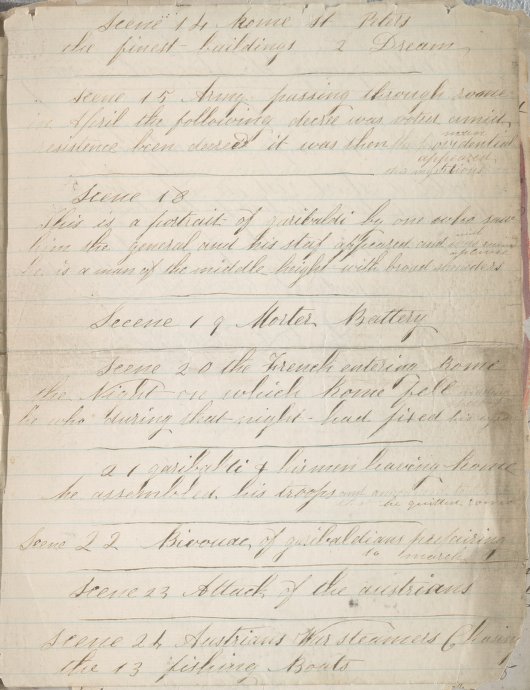 Scene 14 Rome St Peters
the finest buildings 2 Dream
Scene 15 Army passing through rome
in April the following decree was voted amid
resistence been decreed it was then the man
providential
appeared
Scene 18
this is a portrait of garibaldi by one who saw
him the general and his staf appeared and
he is a man of the middle hight with broad shoulders
Sceene 19 Morter Battery
Scene 20 the French entering Rome
the Night on which Rome fell
he who during that night had fixed his eyes
21 garibaldi & his men leaving Rome
he assembled his troops
he quitted rome
Scene 22 Bivouac of garibaldians prefairing
to march
Scene 23 Attack of the austrians
Scene 24 Austrians War steamers Chasing
the 13 fishing Boats
5